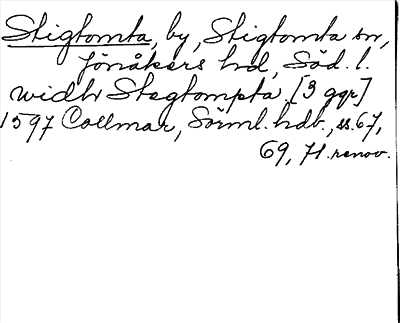 Stigtomta, by, Stigtomta sn,
Jönåkers hd, Söd. l.
widh Stegtompta [3 ggr]
1597 Collmar, Sörml. hdb., ss. 67,
69, 71. renov.